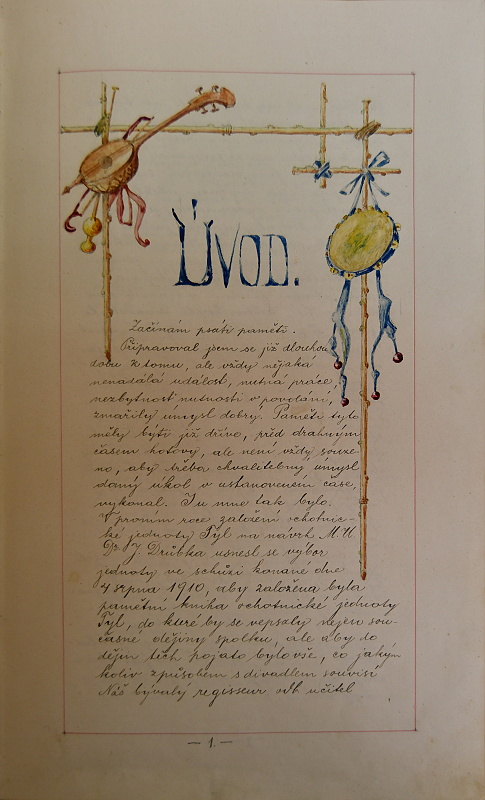 Úvod.
Začínám psáti paměti.
Připravoval jsem se již dlouhou
dobu k tomu, ale vždy nějaká
nenadálá událost, nutná práce,
nezbytnost nutnosti v povolání,
zmařily úmysl dobrý. Paměti tyto
měly býti již dříve, před drahným
časem hotovy, ale není vždy souze-
no, aby třeba chvalitebný úmysl
daný úkol v ustanoveném čase,
vykonal. I u mne tak bylo.
V prvním roce založení ochotnic-
ké jednoty Tyl na návrh M.U.
Dr. J. Drůbka usnesl se výbor
jednoty ve schůzi konané dne
4 srpna 1910, aby založena byla
pamětní kniha ochotnické jednoty
Tyl, do které by se vepsaly nejen sou-
časné dějiny spolku, ale aby do
dějin těch pojato bylo vše, co jakým
koliv způsobem s divadlem souvisí
Náš bývalý regisseur, odb. učitel
— 1. —